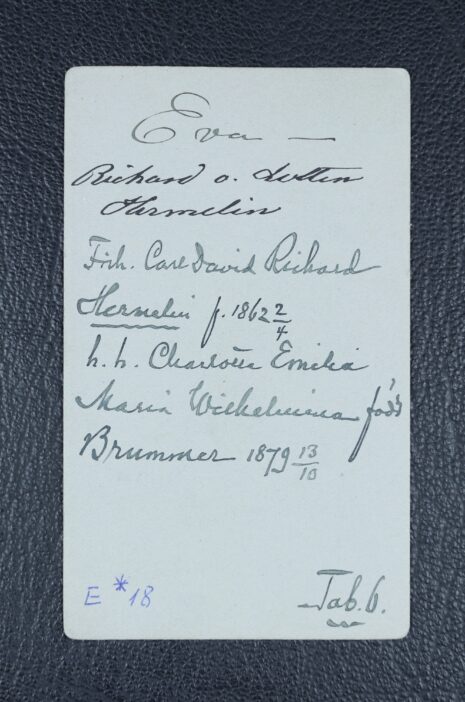 Eva —
Richard o. Lotten
Hermelin
Frh. Carl David Richard
Hermelin f. 1862 2/4
h. h. Charlotta Emilia
Maria Wilhelmina född
Brummer 1879 13/10
E * 18
Tab. 6.